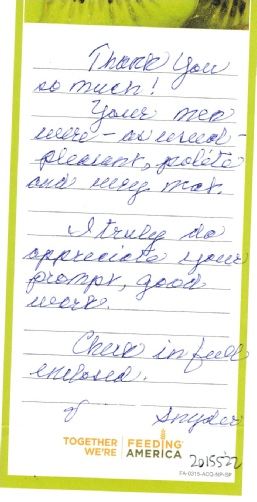 Thank you
so much!
Your men
were - as usual -
pleasant, polite
and very
I truly do
appreciate your
prompt, good
work.
Check in full
enclosed.
Snyder
TOGETHER
WE'RE
FEEDING
AMERICA
201552
FA-0315-ACQ-NP-SP